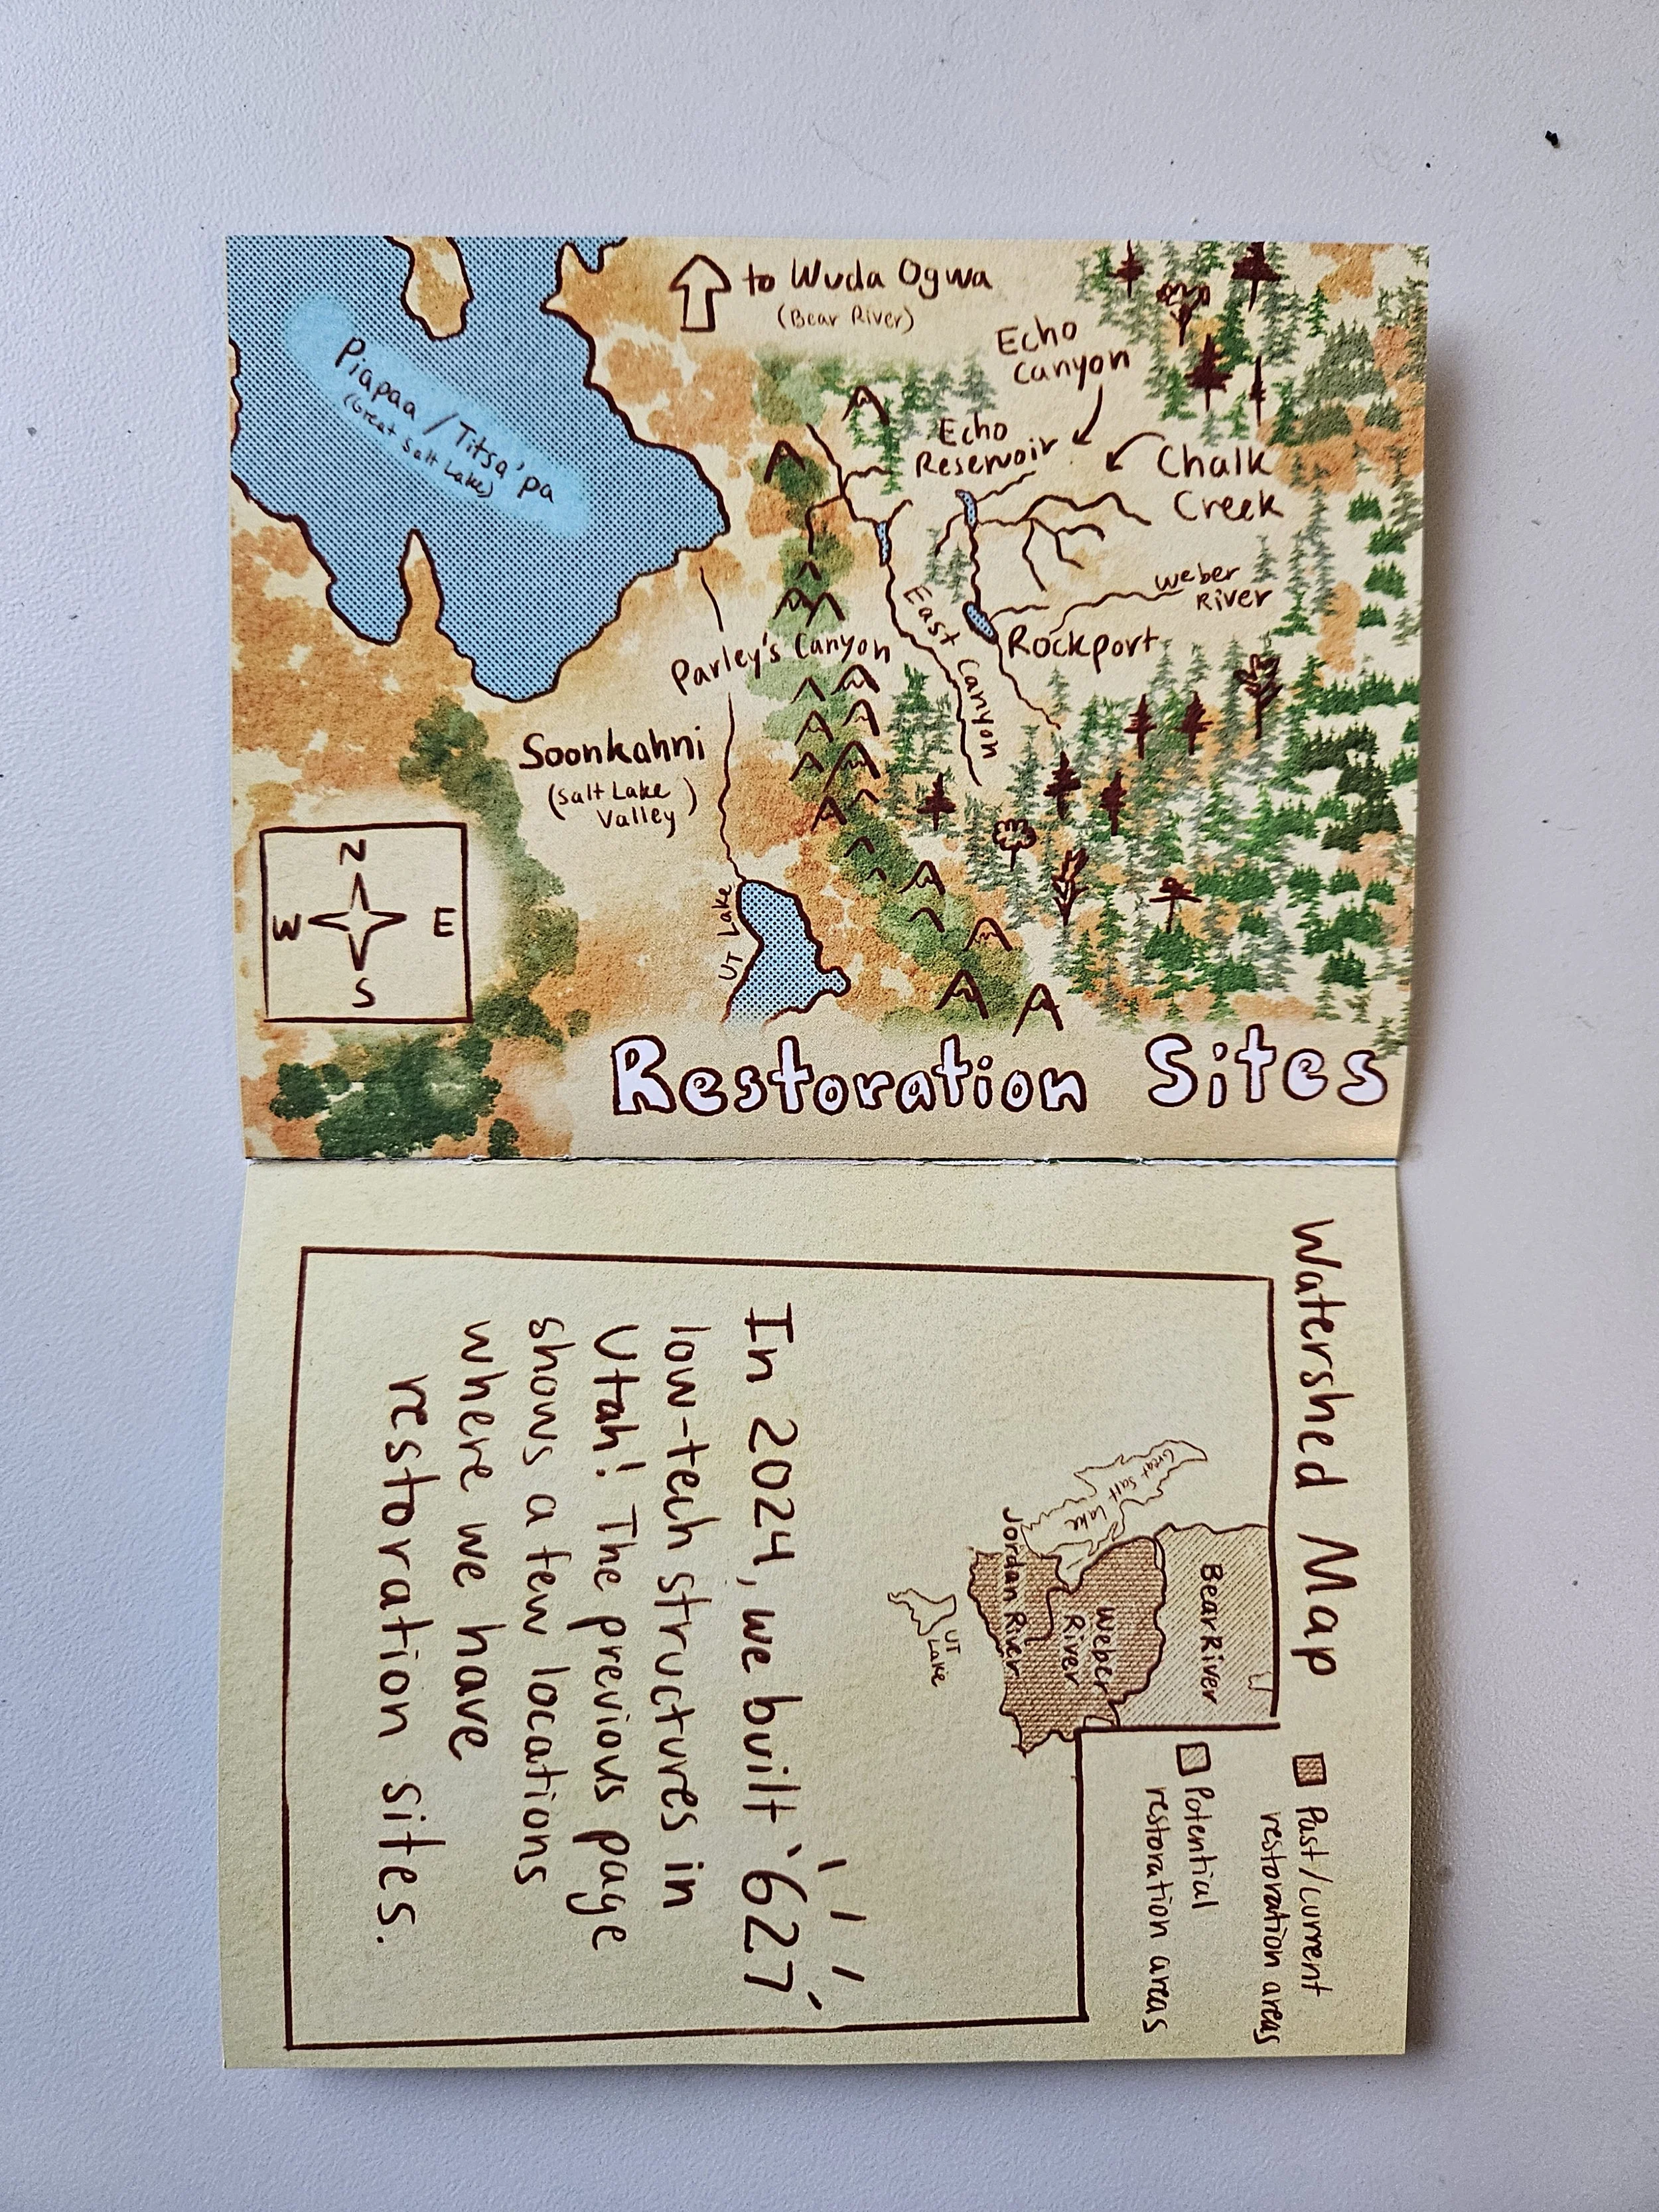 to Wuda Ogwa
(Bear River)
Echo
Canyon
Piapaa / Titsa'pa
(Great Salt Lake)
Echo
Reservoir
Chalk
Creek
Weber
River
East Canyon
Rockport
Parley's Canyon
Soonkahni
(Salt Lake
Valley)
N
W E
S
UT Lake
Restoration Sites
Watershed Map
Past/current
restoration areas
Potential
restoration areas
Bear River
Great Salt Lake
Weber
River
Jordan River
UT
Lake
In 2024, we built 627
low-tech structures in
Utah! The previous page
shows a few locations
where we have
restoration sites.